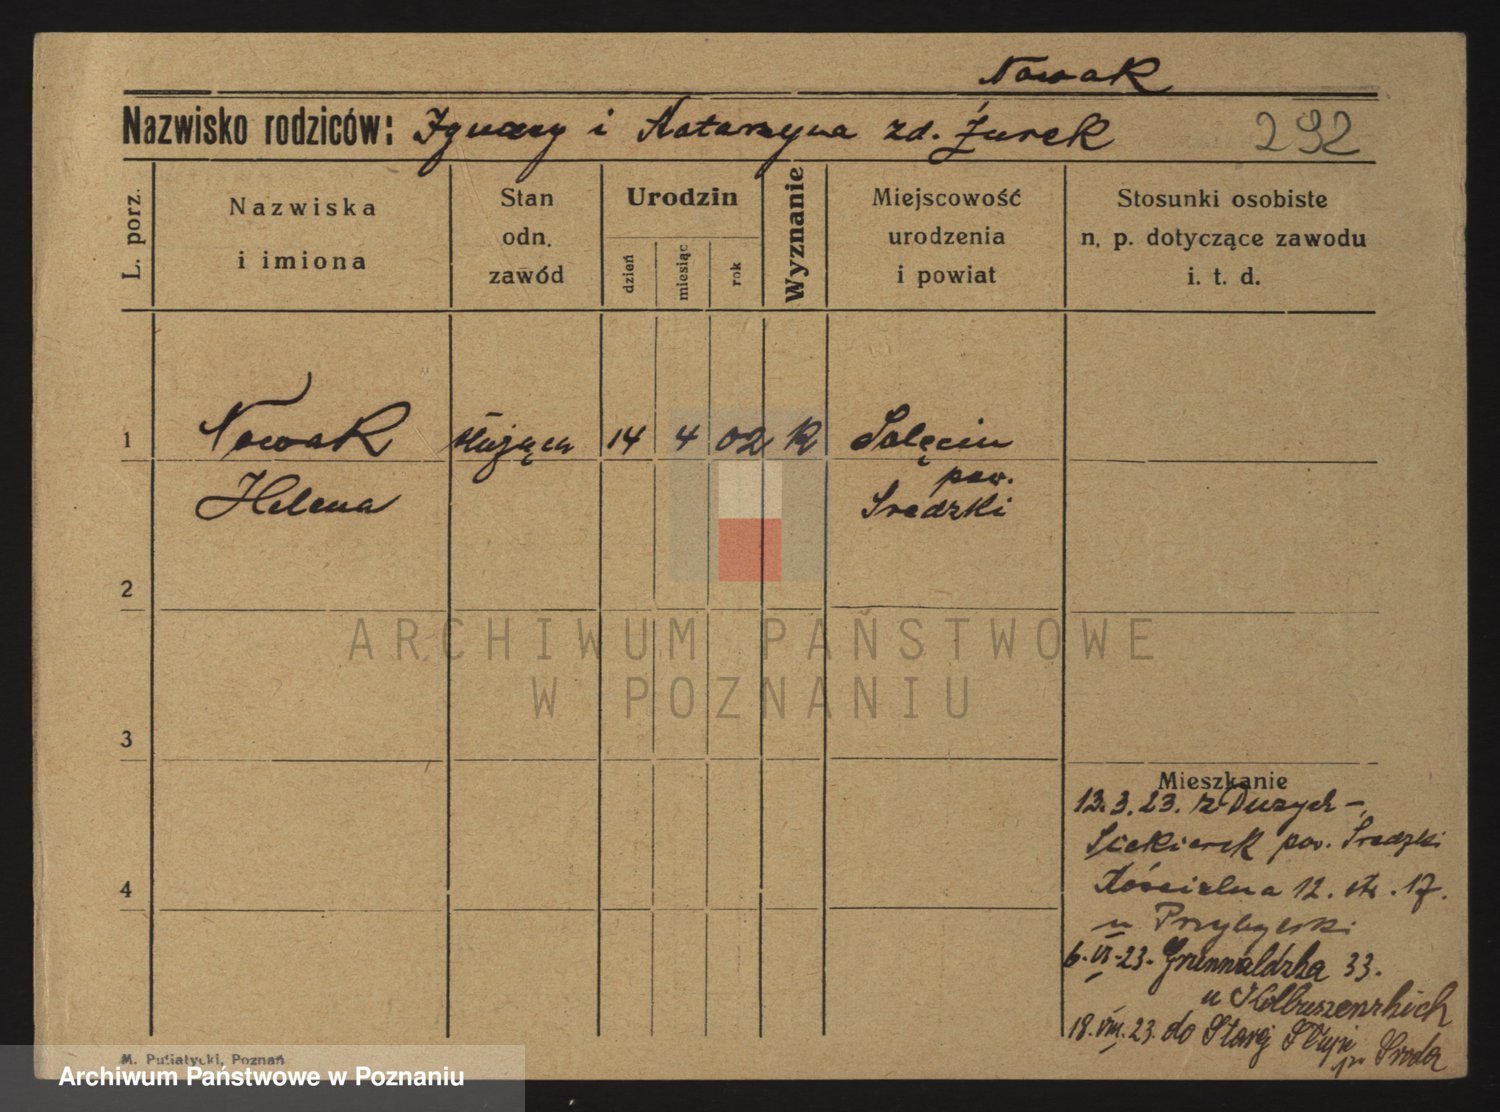 Nowak
Nazwisko rodziców: Ignacy i Katarzyna zd. Żurek 292
L. porz.
Nazwiska
i imiona
Stan
odn.
zawód
Urodzin
dzień
miesiąc
rok
Wyznanie
Miejscowość
urodzenia
i powiat
Stosunki osobiste
n. p. dotyczące zawodu
i. t. d.
1 Nowak służąca 14 4 02 K Solęcin
pow.
Helena Sredzki
2
ARCHIWUM PAŃSTWOWE
W POZNANIU
3
Mieszkanie
13.3.23. z Duzych-
Siekierek pow. Sredzki
4 Kościelna 12. str. 17.
u Przybylski
6.VI-23. Grunwaldzka 33.
u
18.VIII.23. do Starej p. Sroda
M. Putiatycki, Poznań
Archiwum Państwowe w Poznaniu